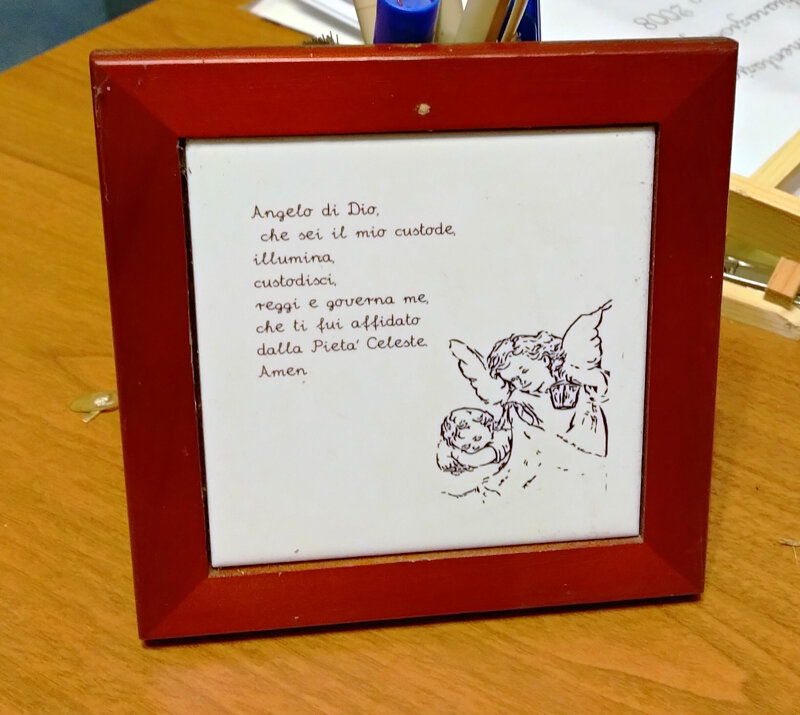 Angelo di Dio,
che sei il mio custode,
illumina,
custodisci,
reggi e governa me,
che ti fui affidato
dalla Pieta' Celeste.
Amen
2008